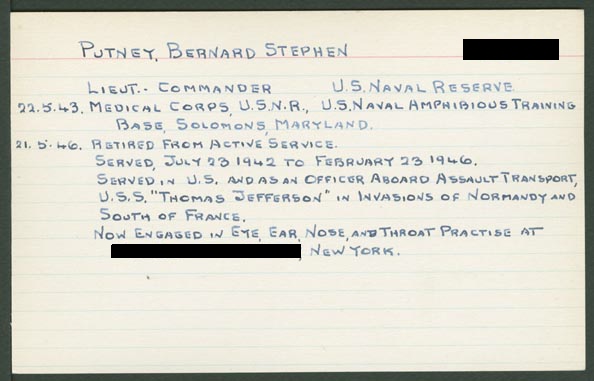 PUTNEY, BERNARD STEPHEN
LIEUT.- COMMANDER U.S. NAVAL RESERVE
22.5.43. MEDICAL CORPS, U.S.N.R., U.S. NAVAL AMPHIBIOUS TRAINING
BASE, SOLOMONS, MARYLAND.
21.5.46. RETIRED FROM ACTIVE SERVICE.
SERVED, JULY 23 1942 TO FEBRUARY 23 1946.
SERVED IN U.S. AND AS AN OFFICER ABOARD ASSAULT TRANSPORT,
U.S.S. "THOMAS JEFFERSON" IN INVASIONS OF NORMANDY AND
SOUTH OF FRANCE.
NOW ENGAGED IN EYE, EAR, NOSE, AND THROAT PRACTISE AT
, NEW YORK.